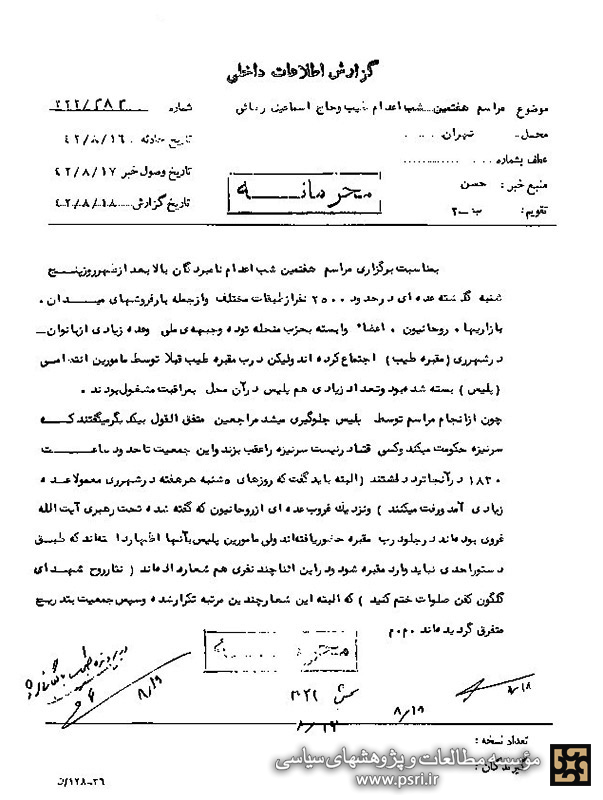 گزارش اطلاعات داخلی
موضوع مراسم هفتمین شب اعدام طیب و حاج اسماعیل رضائی
شماره ۲۸۲/۲۲۲
محل - تهران
تاریخ حادثه ۴۲/۸/۱۶
عطف بشماره
تاریخ وصول خبر ۴۲/۸/۱۷
منبع خبر: حسن
تاریخ گزارش ۴۲/۸/۱۸
تقویم: ب-۲
محرمانه
بمناسبت برگزاری مراسم هفتمین شب اعدام نامبردگان بالا بعد از ظهر روز پنج
شنبه گذشته عده ای در حدود ۲۵۰۰ نفر از طبقات مختلف و از جمله بار فروشهای میدان،
بازاریها، روحانیون، اعضاء وابسته بحزب منحله توده و جبهه ملی و عده زیادی از بانوان
در شهر ری (مقبره طیب) اجتماع کرده اند ولیکن درب مقبره طیب قبلا توسط مامورین انتظامی
(پلیس) بسته شده بود و تعداد زیادی هم پلیس در آن محل بمراقبت مشغول بودند.
چون از انجام مراسم توسط پلیس جلوگیری میشد مراجعین متفق القول بیکدیگر میگفتند که
سرنیزه حکومت میکند وکسی قادر نیست سرنیزه را عقب بزند و این جمعیت تا حدود ساعت
۱۸۳۰ در آنجا تردد داشتند (البته باید گفت که روزهای ۵شنبه هر هفته در شهر ری معمولا عده
زیادی آمد و رفت میکنند) و نزدیک غروب عده ای از روحانیون که گفته شده تحت رهبری آیت الله
غروی بوده اند در جلو درب مقبره حضور یافته اند ولی مامورین پلیس بآنها اظهار داشته اند که طبق
دستور احدی نباید وارد مقبره شود و در این اثنا چند نفری هم شعار داده اند (نثار روح شهدای
گلگون کفن صلوات ختم کنید) که البته این شعار چندین مرتبه تکرار شده و سپس جمعیت بتدریج
متفرق گردیده اند م.م
محرمانه
۸/۱۹
۸/۱۸
۸/۱۹
تعداد نسخه:
گیرندگان:
۱۲۸-۳۶/ن
مؤسسه مطالعات و پژوهشهای سیاسی
www.psri.ir